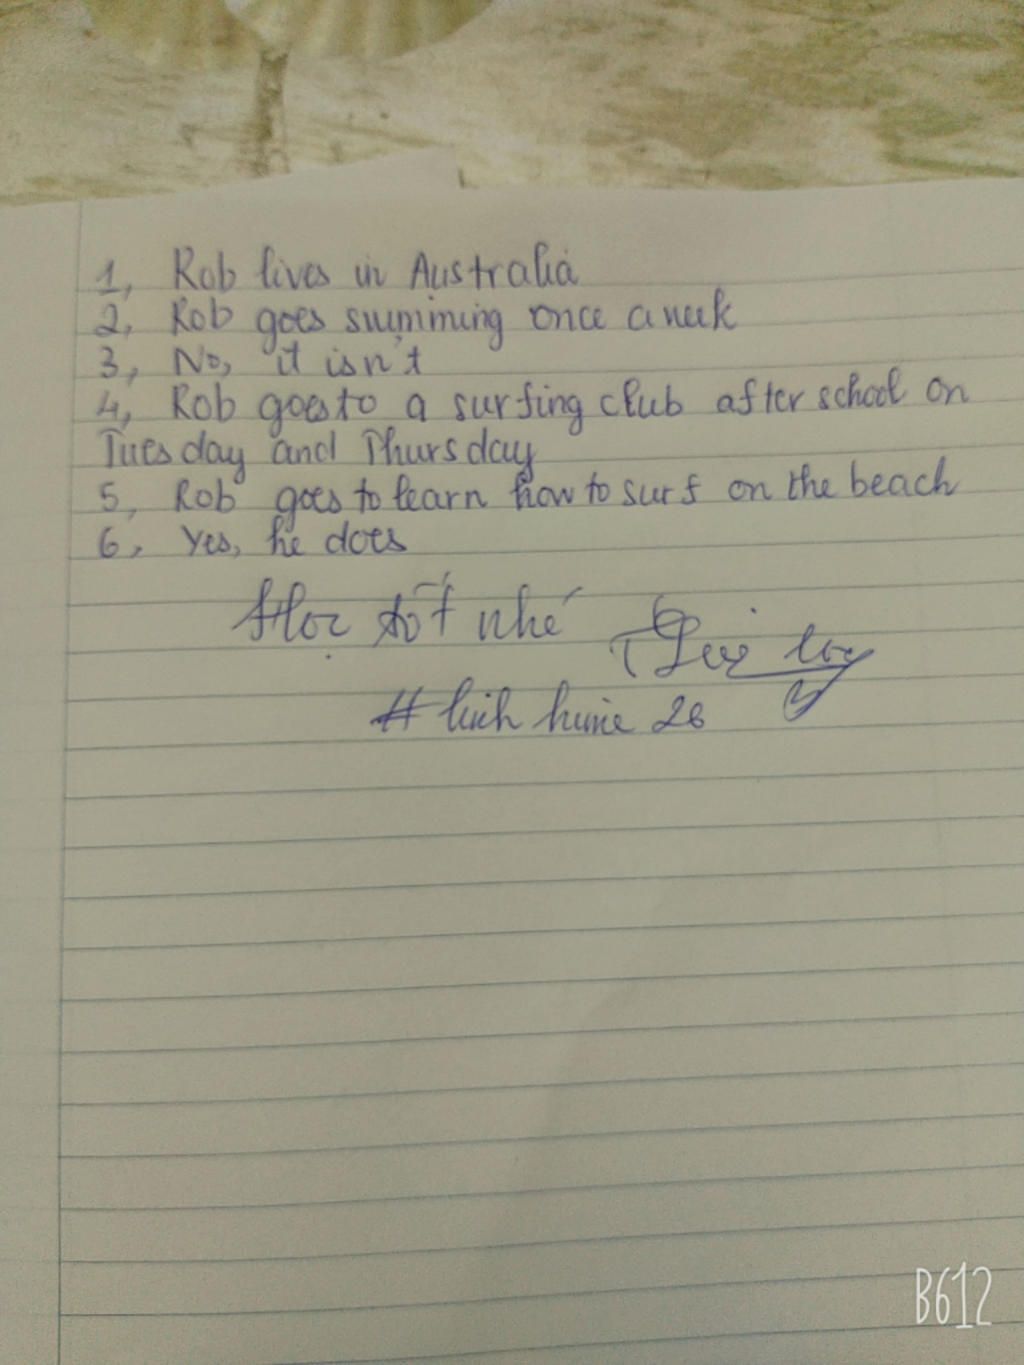 1, Rob lives in Australia
2, Rob goes swimming once a week
3, No, it isn't
4, Rob goes to a surfing club after school on
Tuesday and Thursday
5, Rob goes to learn how to surf on the beach
6, Yes, he does
Học tốt nhé
# linh hunie 26
B612